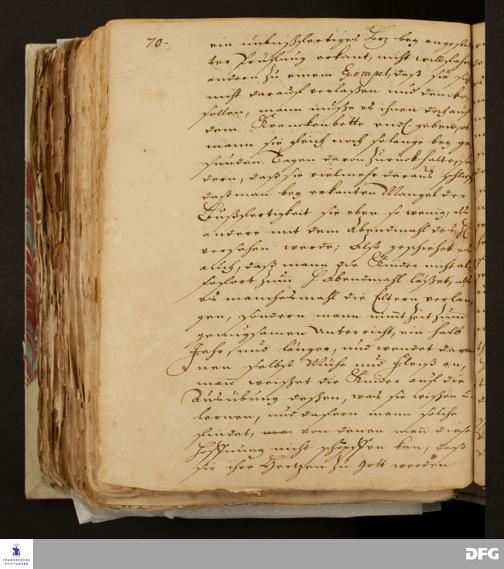 70.
ein unbußfertiges Herz bey angestel-
ter Prüfung erkant, nicht willfahre,
andern zu einem Exempel, daß sie sich
nicht darauf verlaßen und dencken
solten, mann müße es ihnen doch auf
dem Kranckenbette endl. geben, ob
mann sie gleich noch solange bey ge-
sunden Tagen davon zurückhalte, son-
dern, daß sie vielmehr daraus schließen
daß man bey erkanten Mangel der
Bußfertigkeit sie eben so wenig, als
andere mit dem Abendmahl des H
versehen werde; Alß geschiehet es
auch, daß mann die Kinder nicht al-
sofort zum H Abendmahl läßet, als
es manchesmahl die Eltern verlan-
gen, sondern mann nimt Zeit zum
genugsamen Unterricht, ein halb
Jahr, und länger, und wendet daran
selbst Mühe und Fleiß an,
man weiset die Kinder auf die
Ausübung deßen, was sie wißen u.
lernen, und dafern mann solche
findet, von denen man diese
Hoffnung nicht schöpffen kan, daß
sie ihre Hertzen zu Gott wenden
FRANCKESCHE STIFTUNGEN
DFG